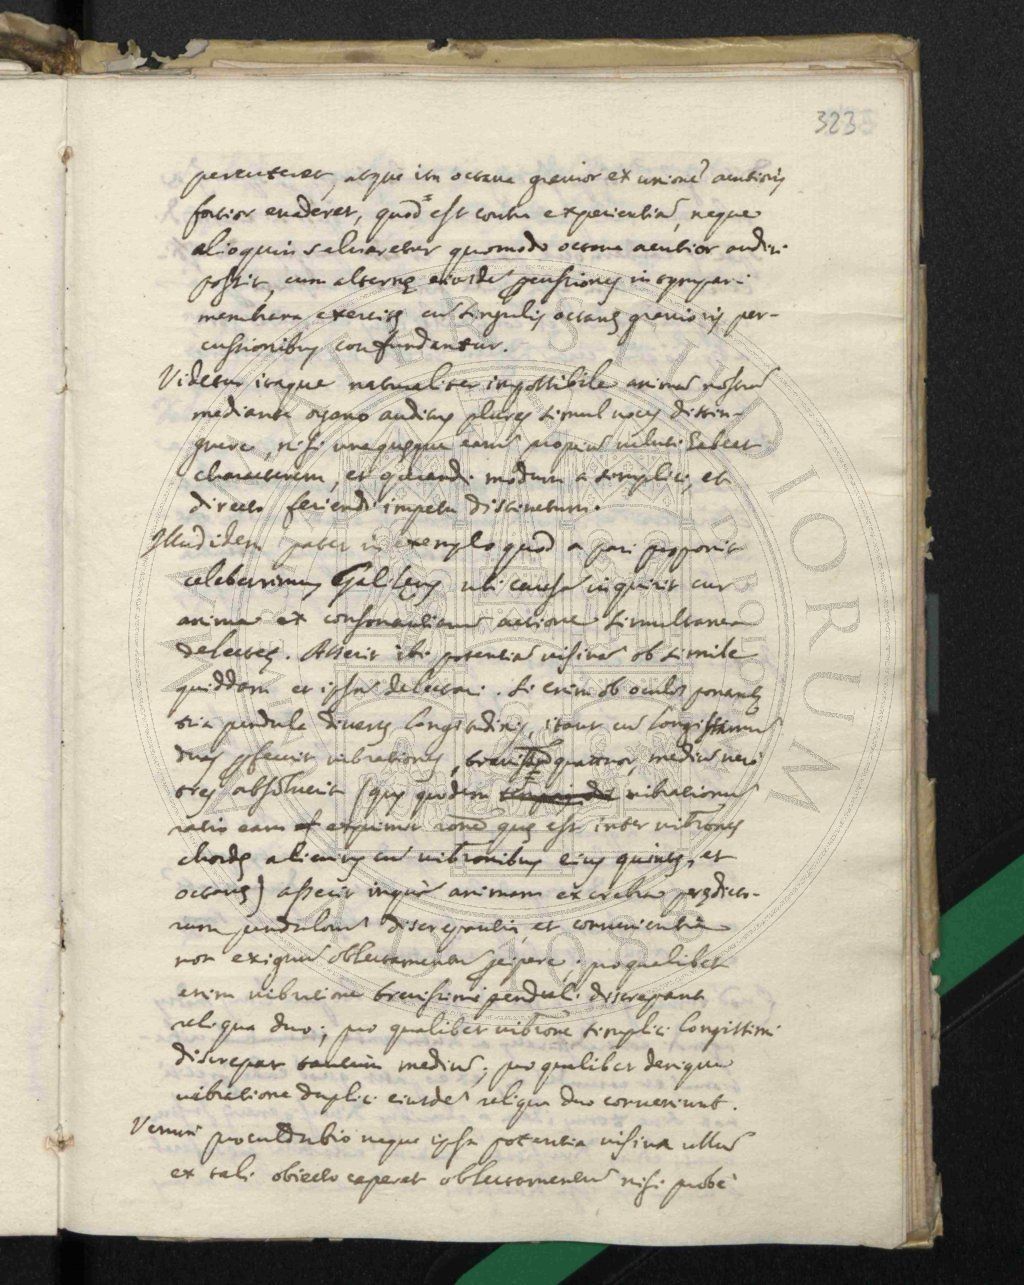 323
percuteret, atque ita octava gravior ex unione acutioris
fortior evaderet, quod est contra experientiã, neque
alioquin salvaretur quomodo octava acutior audiri
possit, cum alternę eiusdẽ pensiones in tympani
membrana exercitę cũ singulis octavę gravioris per-
cussionibus confundantur.
Videtur itaque naturaliter impossibile animã nostrã
mediante organo auditus plures simul voces distin-
guere, nisi unaquęque earũ propriũ veluti habeat
characterem, et modum a simplici, et
directo feriendi impetu distinctum.
Illud idem patet in exemplo quod a pari proponit
celeberrimus Galileus ubi causã inquirit cur
anima ex consonantiarũ actione simultanea
delectet. Asserit ibi potentiã visivã ob simile
quiddam et ipsã delectari. Si enim ob oculos ponantur
tria pendula diversę longitudinis, itaut cũ longissimũ
duas perfecerit vibrationes, brevissimũ quattuor, mediũ vero
tres absolverit (quę quidem vibrationũ
ratio eam exprimit ronẽ quę est inter vibrõnes
chordę alicuius cũ vibrõnibus eius quintę, et
octavę) asserit inquã animam ex crebra prędicto-
rum pendulorũ discrepantia, et convenientia
non exiguũ oblectamentũ percipere; pro qualibet
enim vibratione brevissimi penduli discrepant
reliqua duo; pro qualibet vibrõne simplici longissimi
discrepat tantum mediũ; pro qualibet denique
vibratione duplici eiusdẽ reliqua duo conveniunt.
Verum proculdubio neque ipsa potentia visiva ullũ
ex tali obiecto caperet oblectamentũ nisi probe